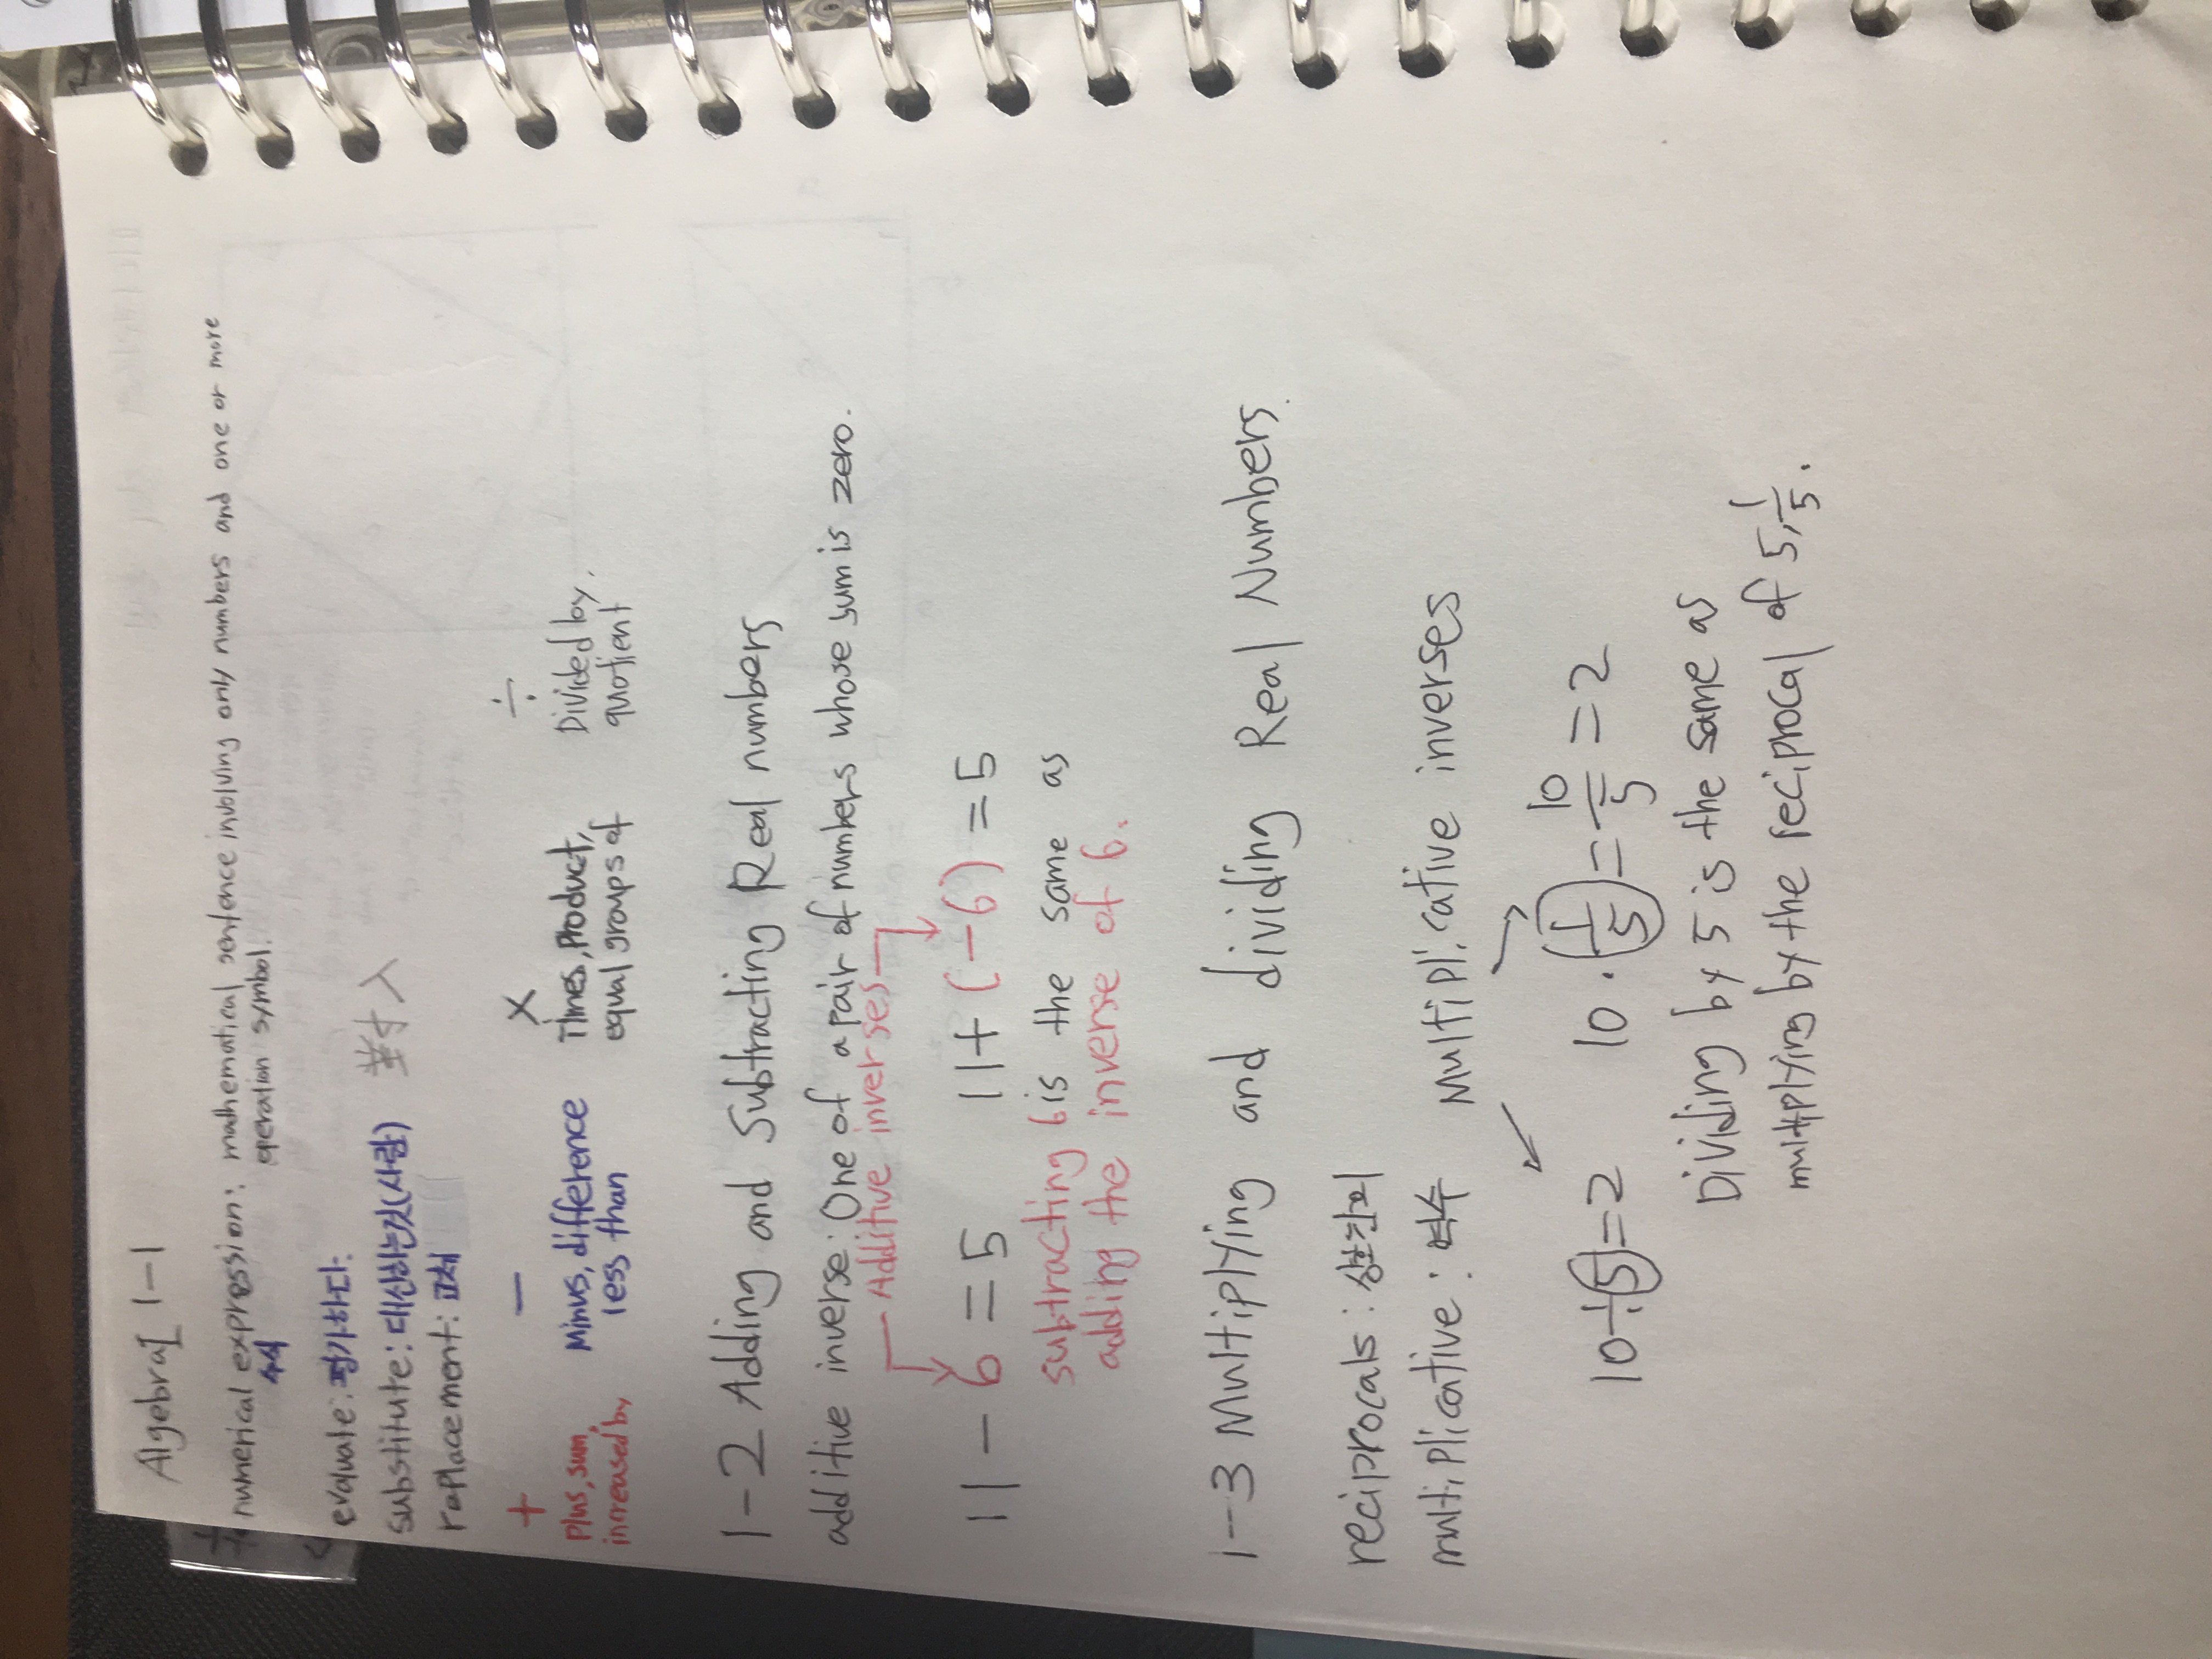 Algebra 1-1
numerical expression: mathematical sentence involving only numbers and one or more
수식 operation symbol.
evaluate: 평가하다.
substitute: 대신하는것(사람)
replacement: 교체
+ - × ÷
Plus, sum, Minus, difference Times, Product, Divided by,
increased by less than equal groups of quotient
1-2 Adding and Subtracting Real numbers
additive inverse: One of a pair of numbers whose sum is zero.
Additive inverses
11 - 6 = 5 11 + (-6) = 5
subtracting 6 is the same as
adding the inverse of 6.
1-3 Multiplying and dividing Real Numbers.
reciprocals: 상호간의
multiplicative: 역수 Multiplicative inverses
10 ÷ 5 = 2 10 · (1/5) = 10/5 = 2
Dividing by 5 is the same as
multiplying by the reciprocal of 5, 1/5.